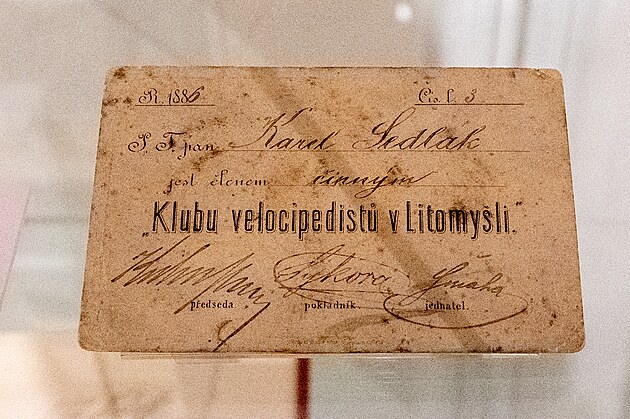 R. 1886 Čís. l. 3
P. T. pan Karel Sedlák
jest členem činným
„Klubu velocipedistů v Litomyšli."
Sýkora Smaha
předseda pokladník. jednatel.